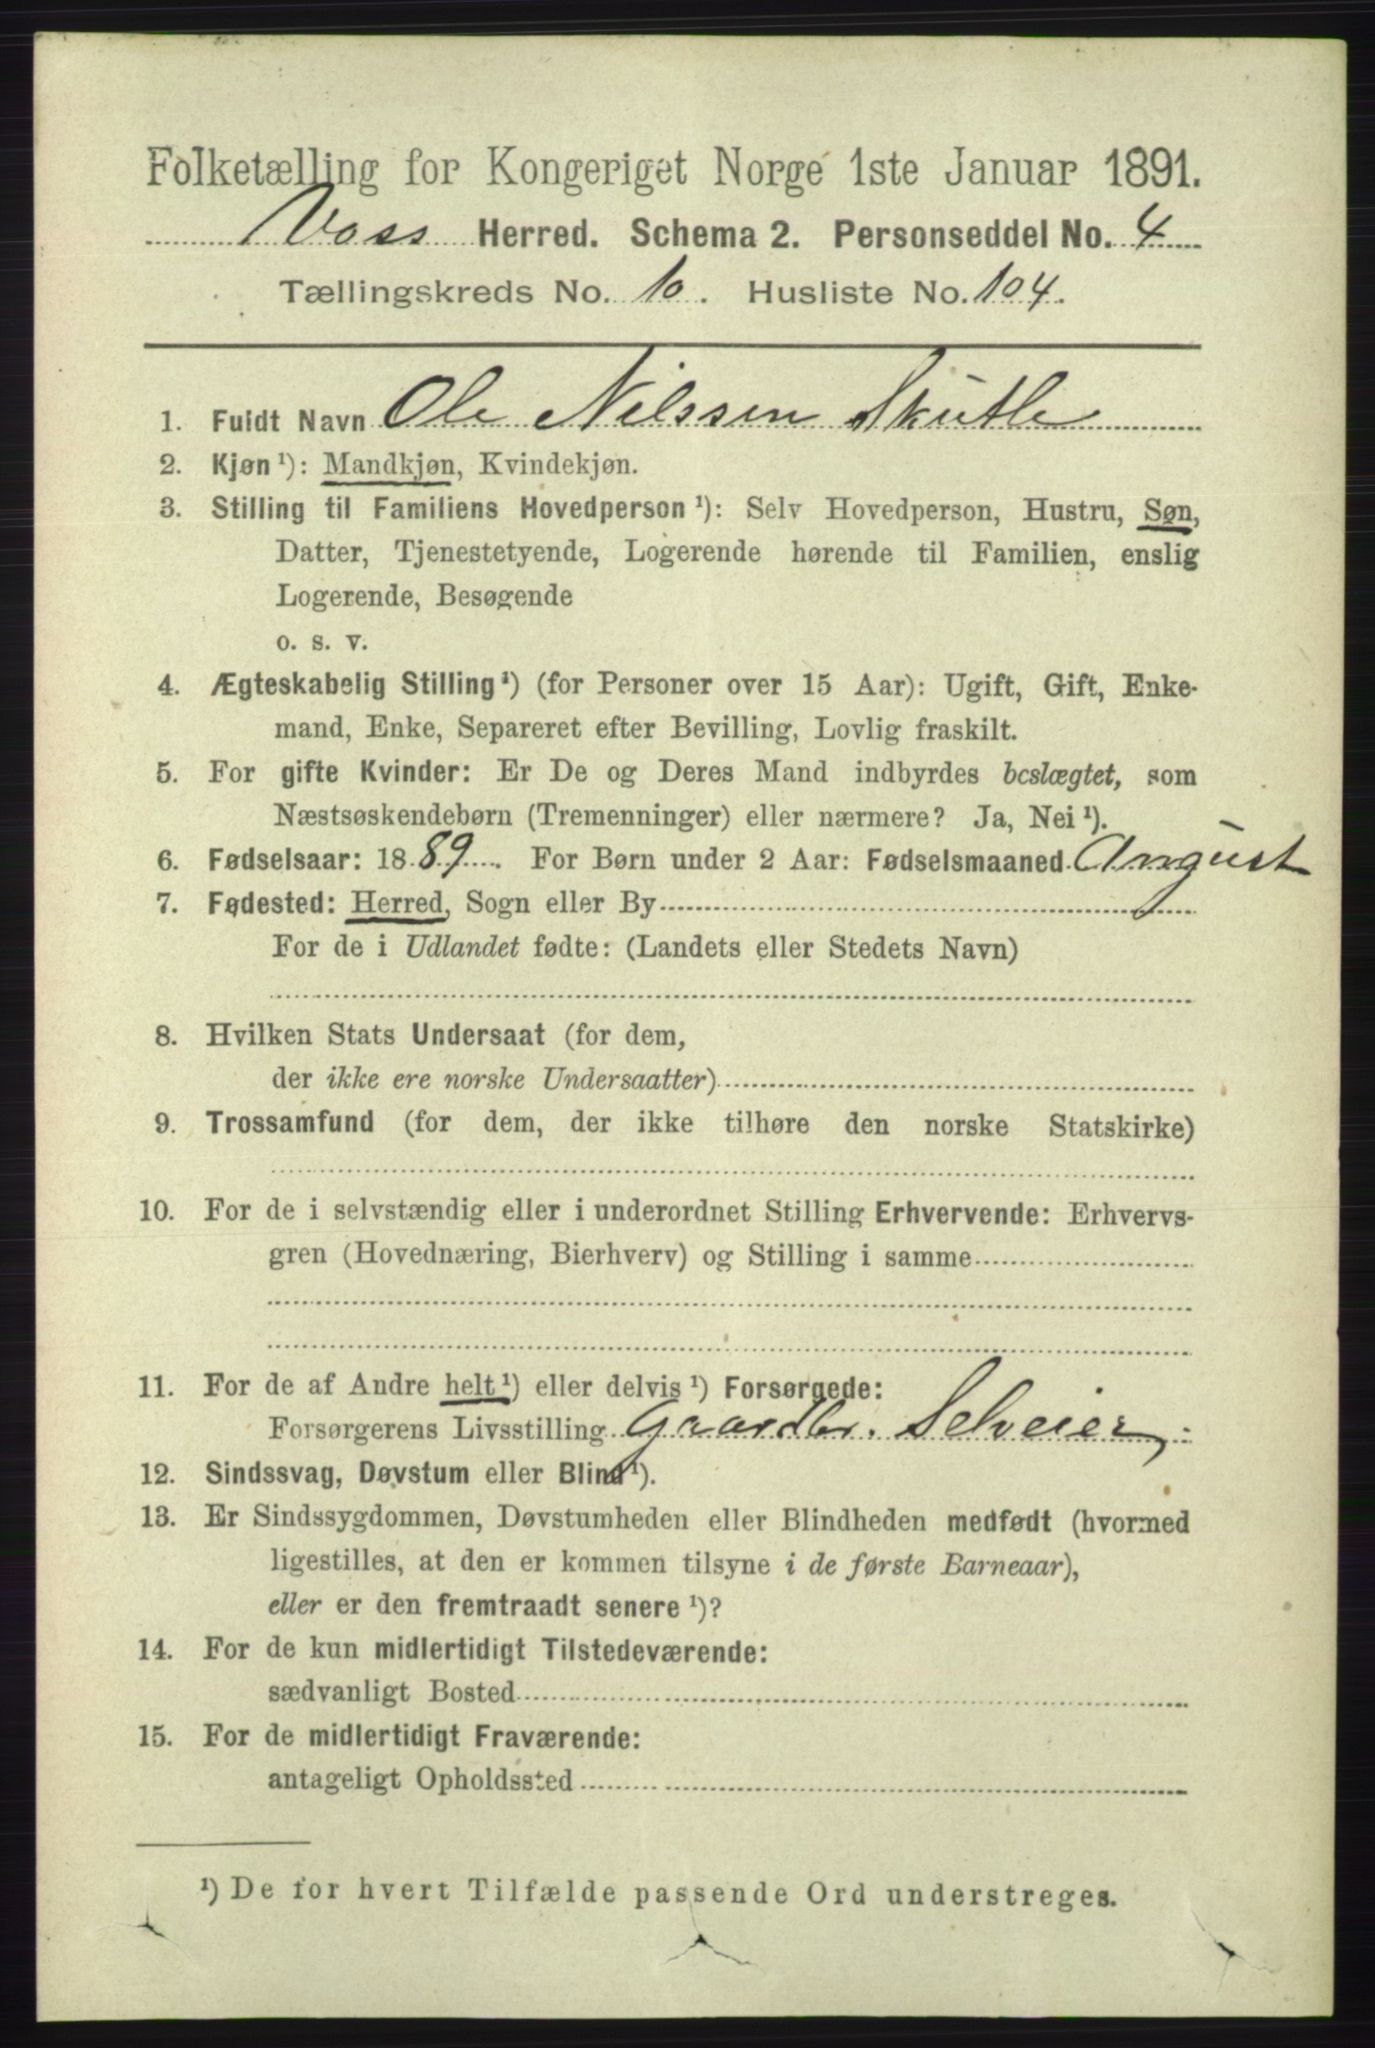 Folketælling for Kongeriget Norge 1ste Januar 1891.
Voss Herred. Schema 2. Personseddel No. 4
Tællingskreds No. 10. Husliste No. 104.
1. Fuldt Navn Ole Nilssen Skutle
2. Kjøn ¹): Mandkjøn, Kvindekjøn.
3. Stilling til Familiens Hovedperson ¹): Selv Hovedperson, Hustru, Søn,
Datter, Tjenestetyende, Logerende hørende til Familien, enslig
Logerende, Besøgende
o. s. v.
4. Ægteskabelig Stilling ¹) (for Personer over 15 Aar): Ugift, Gift, Enke-
mand, Enke, Separeret efter Bevilling, Lovlig fraskilt.
5. For gifte Kvinder: Er De og Deres Mand indbyrdes beslægtet, som
Næstsøskendebørn (Tremenninger) eller nærmere? Ja, Nei ¹).
6. Fødselsaar: 1889. For Børn under 2 Aar: Fødselsmaaned August
7. Fødested: Herred, Sogn eller By
For de i Udlandet fødte: (Landets eller Stedets Navn)
8. Hvilken Stats Undersaat (for dem,
der ikke ere norske Undersaatter)
9. Trossamfund (for dem, der ikke tilhøre den norske Statskirke)
10. For de i selvstændig eller i underordnet Stilling Erhvervende: Erhvervs-
gren (Hovednæring, Bierhverv) og Stilling i samme
11. For de af Andre helt ¹) eller delvis ¹) Forsørgede:
Forsørgerens Livsstilling Gaardbr. Selveier
12. Sindssvag, Døvstum eller Blind ¹).
13. Er Sindssygdommen, Døvstumheden eller Blindheden medfødt (hvormed
ligestilles, at den er kommen tilsyne i de første Barneaar),
eller er den fremtraadt senere ¹)?
14. For de kun midlertidigt Tilstedeværende:
sædvanligt Bosted
15. For de midlertidigt Fraværende:
antageligt Opholdssted
¹) De for hvert Tilfælde passende Ord understreges.